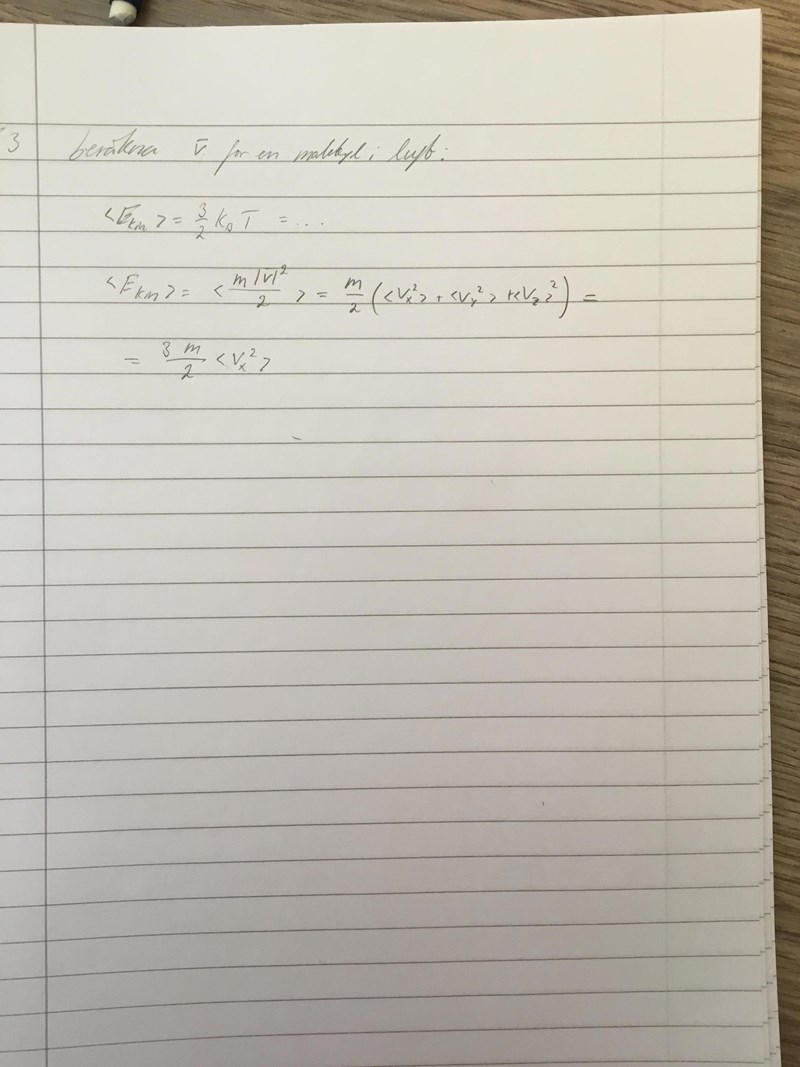 3 beräkna v̄ för en molekyl i luft:
<E_km> = 3/2 k_B T = ...
<E_km> = < m|v̄|²/2 > = m/2 (<v_x²> + <v_y²> + <v_z>²) =
= 3m/2 <v_x²>